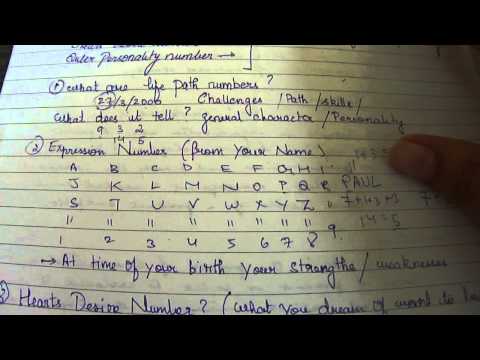 Outer Personality number →
① what are life path numbers ?
27/3/2000 Challenges / Path / skills /
what does it tell ? general character / Personality
9 3 2
14 5
② Expression Number (from your Name)
A B C D E F G H I
J K L M N O P Q R PAUL
S T U V W X Y Z 7+1+3+3
" " " " " " " " 14=5
1 2 3 4 5 6 7 8 9
→ At time of your birth your strengths / weaknesses
Hearts Desire Number ? (what you dream of want to